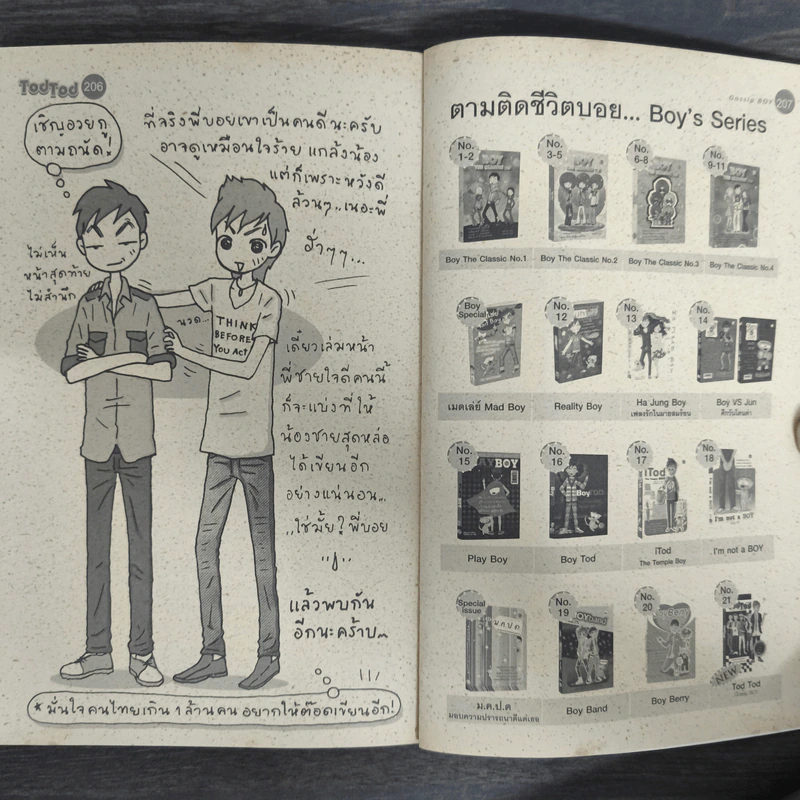 TodTod 206
เชิญอวยกู
ตามถนัด!
ที่จริงพี่บอยเขาเป็นคนดีนะครับ
อาจดูเหมือนใจร้าย แกล้งน้อง
แต่ก็เพราะหวังดี
ล้วนๆ...เนอะพี่
ฮ่าๆๆ...
ไม่เห็น
หน้าสุดท้าย
ไม่สำนึก
นวด...
THINK
BEFORE
YOU ACT
เดี๋ยวเล่มหน้า
พี่ชายใจดีคนนี้
ก็จะแบ่งที่ให้
น้องชายสุดหล่อ
ได้เขียนอีก
อย่างแน่นอน...
..ใช่มั้ย? พี่บอย
แล้วพบกัน
อีกนะคร้าบ~
*มั่นใจคนไทยเกิน 1 ล้านคน อยากให้ต๊อดเขียนอีก!
Gossip BOY 207
ตามติดชีวิตบอย... Boy's Series
No. 1-2
No. 3-5
No. 6-8
No. 9-11
Boy The Classic No.1
Boy The Classic No.2
Boy The Classic No.3
Boy The Classic No.4
Boy Special
No. 12
No. 13
No. 14
เมดเล่ย์ Mad Boy
Reality Boy
Ha Jung Boy
เพลงรักในสายลมร้อน
Boy VS Jun
ศึกวันโลกแตก
No. 15
No. 16
No. 17
No. 18
PLAYBOY
BoyTOD
iTod
I'm not a BOY
Play Boy
Boy Tod
iTod
The Temple Boy
I'm not a BOY
Special issue
No. 19
No. 20
No. 21
ม.ค.ป.ด
NEW
ม.ค.ป.ด
มอบความปรารถนาดีแด่เธอ
Boy Band
Boy Berry
Tod Tod
Gossip BOY